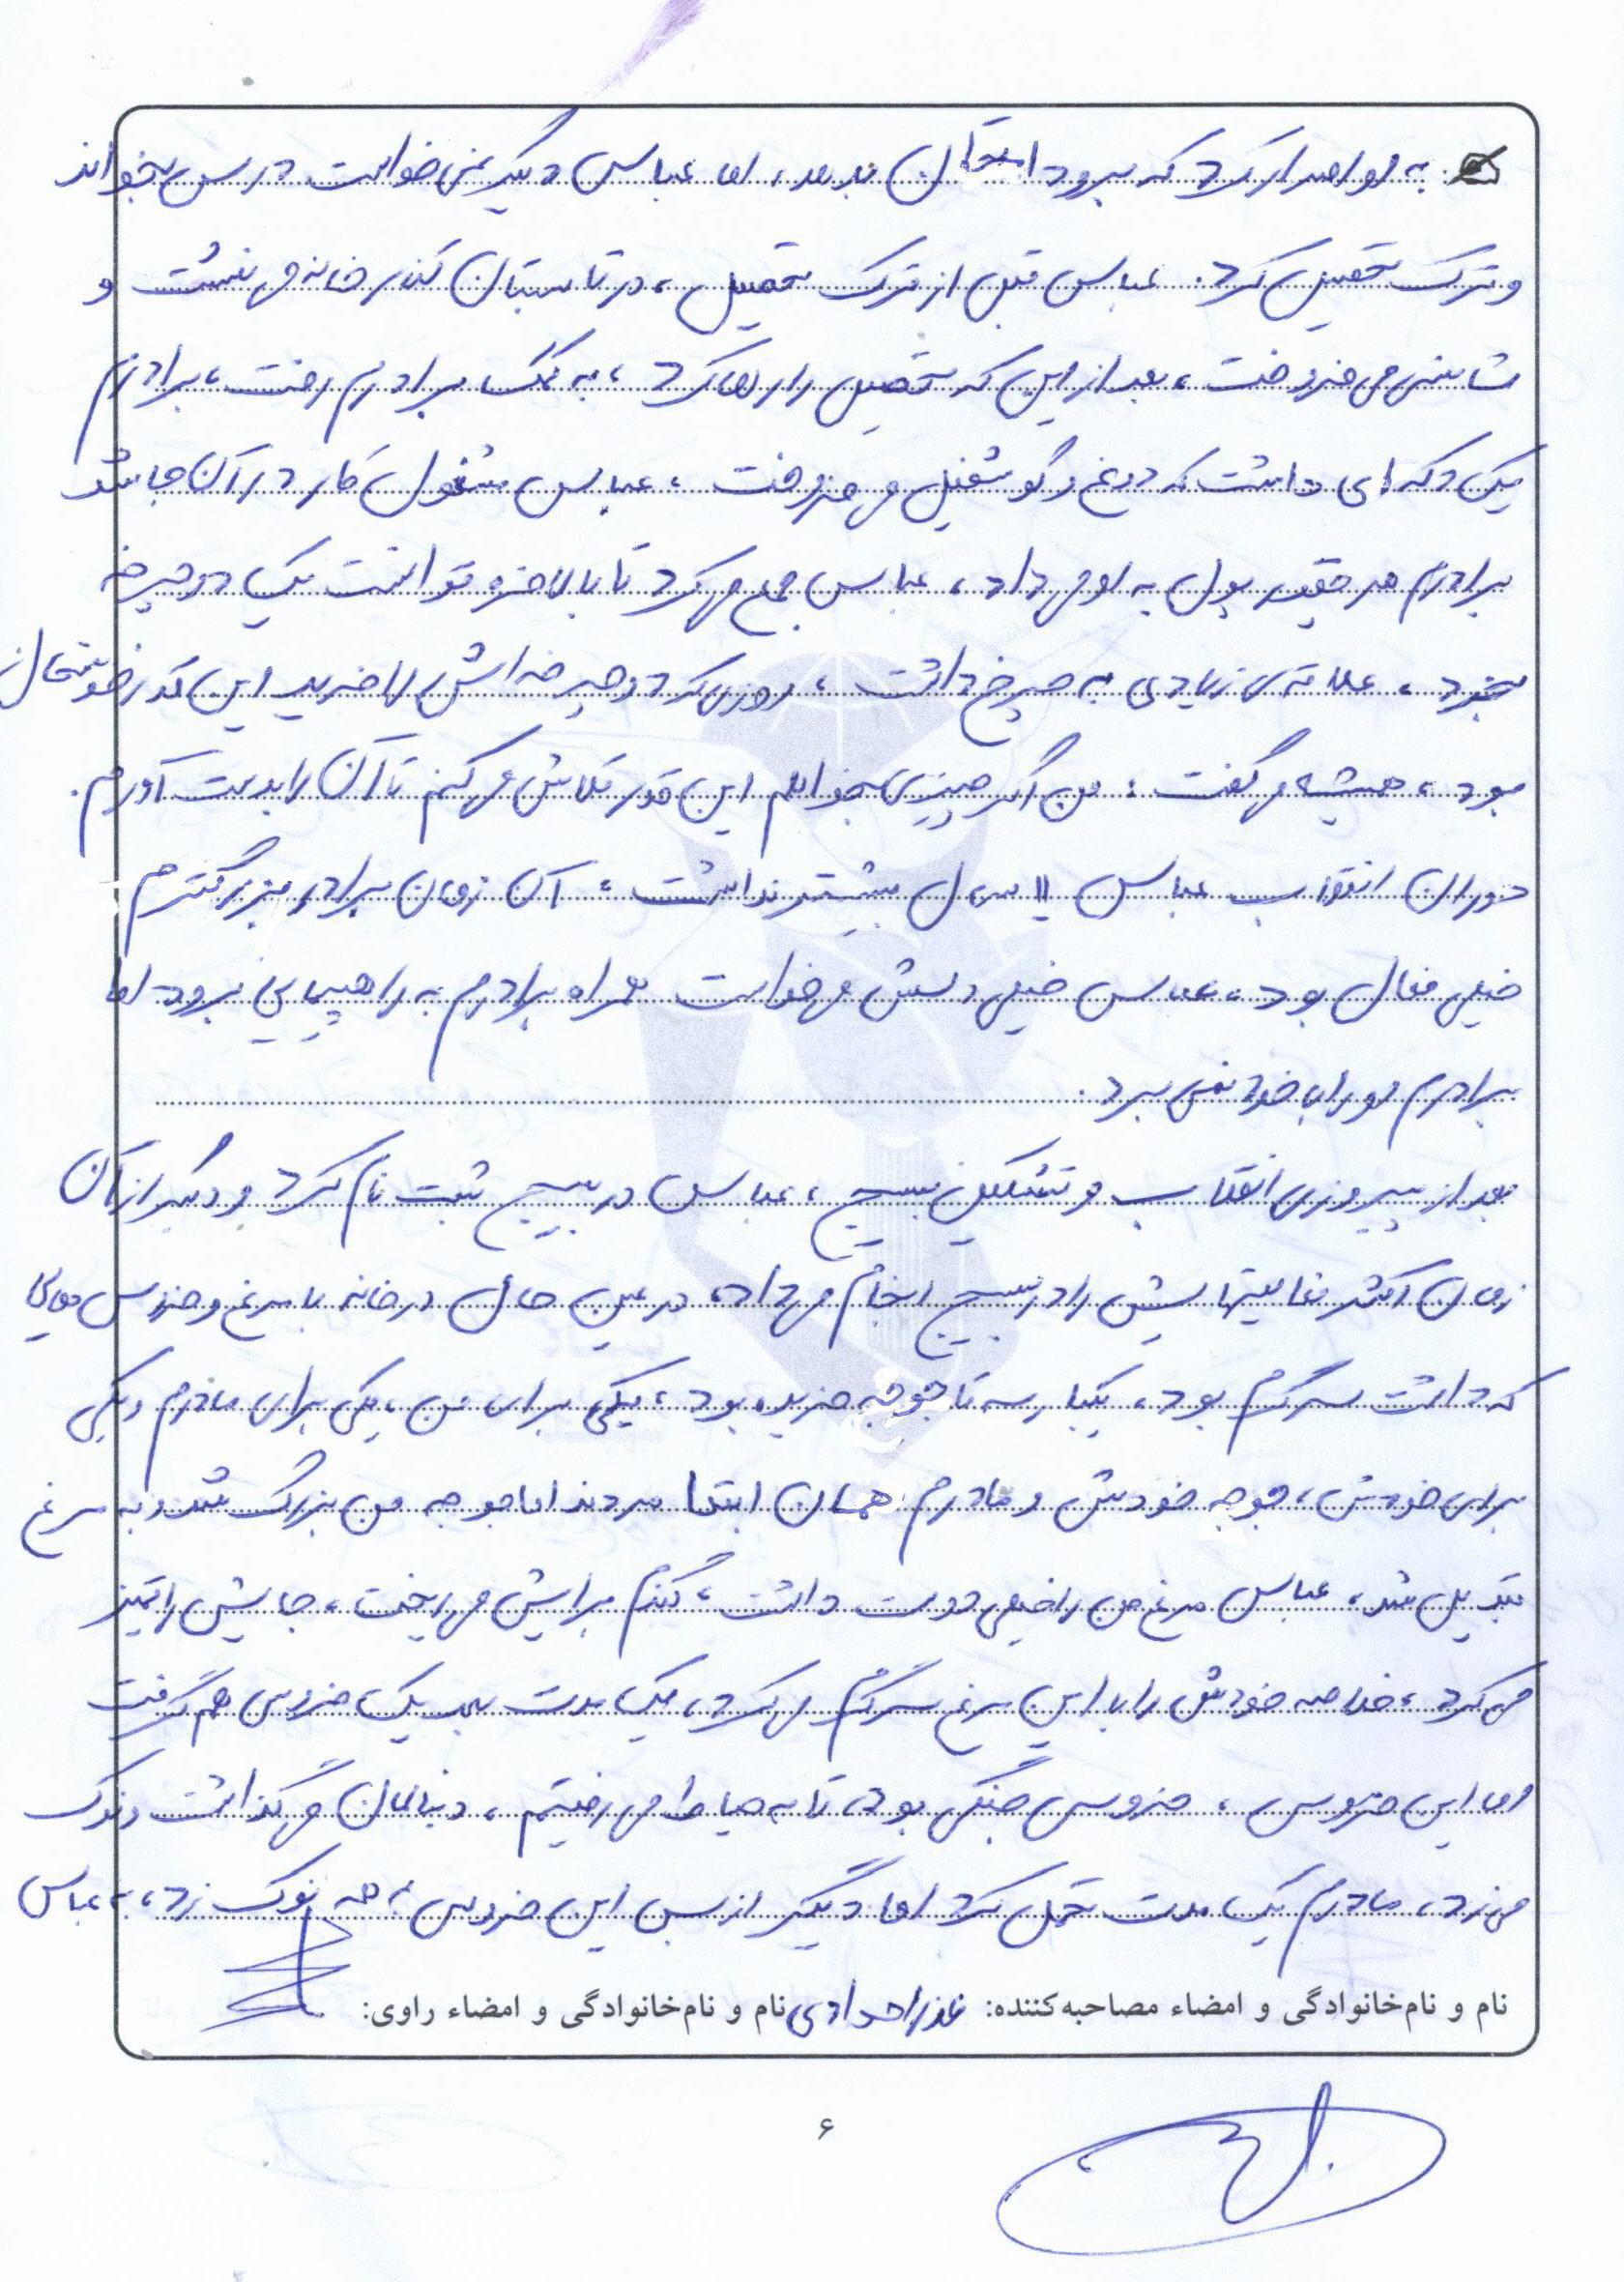 به او اصرار کرد که برود امتحان بدهد، اما عباس دیگر نمی‌خواست درس بخواند
و ترک تحصیل کرد. عباس قبل از ترک تحصیل، در تابستان کنار خانه می‌نشست و
شانسی می‌فروخت، بعد از این که تحصیل را رها کرد، به کمک برادرم رفت، برادرم
یک دکه‌ای داشت که دوغ و گوشفیل می‌فروخت، عباس مشغول کار در آن جا شد
برادرم هر چقدر پول به او می‌داد، عباس جمع می‌کرد تا بالاخره توانست یک دوچرخه
بخرد، علاقه‌ی زیادی به چرخ داشت، روزی که دوچرخه‌اش را خرید این قدر خوشحال
بود، همیشه می‌گفت: من اگر چیزی بخواهم این قدر تلاش می‌کنم تا آن را بدست آورم.
دوران انقلاب عباس ۱۱ سال بیشتر نداشت، آن زمان برادر بزرگترم
خیلی فعال بود، عباس خیلی دلش می‌خواست همراه برادرم به راهپیمایی برود اما
برادرم او را با خود نمی‌برد.
بعد از پیروزی انقلاب و تشکیل بسیج، عباس در بسیج ثبت نام کرد و دیگر از آن
زمان اکثر فعالیتهایش را در بسیج انجام می‌داد، در عین حال در خانه با مرغ و خروس‌هایی
که داشت سرگرم بود، یکبار سه تا جوجه خریده بود، یکی برای من، یکی برای مادرم و یکی
برای خودش، جوجه خودش و مادرم همان ابتدا مردند اما جوجه من بزرگ شد و به مرغ
تبدیل شد، عباس مرغ من را خیلی دوست داشت، گندم برایش می‌ریخت، جایش را تمیز
می‌کرد، خلاصه خودش را با این مرغ سرگرم می‌کرد، یک مدت بعد یک خروس هم گرفت
اما این خروس، خروس جنگی بود، تا به حیاط می‌رفتیم، دنبالمان می‌گذاشت و نوک
می‌زد، مادرم یک مدت تحمل کرد اما دیگر از بس این خروس به همه نوک زد، به عباس
نام و نام‌خانوادگی و امضاء مصاحبه‌کننده: نام و نام‌خانوادگی و امضاء راوی:
۶